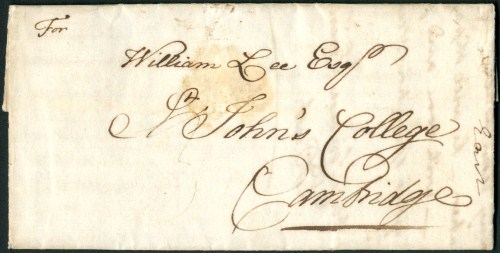 For
William Lee Esqr
St John's College
Cambridge